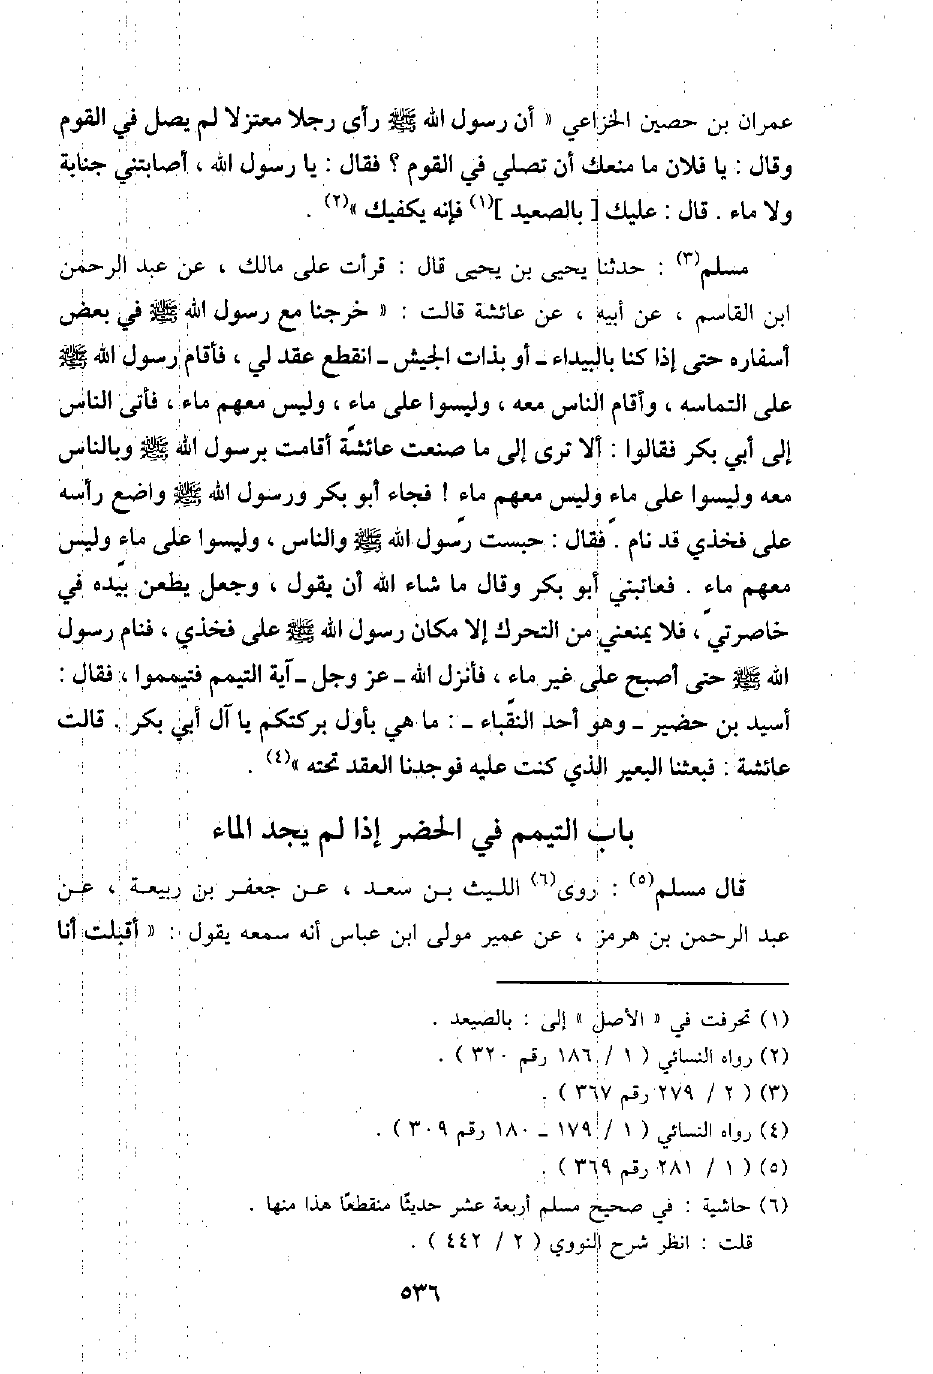 عمران بن حصين الخزاعي « أن رسول الله ﷺ رأى رجلا معتزلا لم يصل في القوم
وقال : يا فلان ما منعك أن تصلي في القوم ؟ فقال : يا رسول الله ، أصابتني جنابة
ولا ماء . قال : عليك [ بالصعيد ](١) فإنه يكفيك »(٢) .
مسلم(٣) : حدثنا يحيى بن يحيى قال : قرأت على مالك ، عن عبد الرحمن
ابن القاسم ، عن أبيه ، عن عائشة قالت : « خرجنا مع رسول الله ﷺ في بعض
أسفاره حتى إذا كنا بالبيداء ـ أو بذات الجيش ـ انقطع عقد لي ، فأقام رسول الله ﷺ
على التماسه ، وأقام الناس معه ، وليسوا على ماء ، وليس معهم ماء ، فأتى الناس
إلى أبي بكر فقالوا : ألا ترى إلى ما صنعت عائشة أقامت برسول الله ﷺ وبالناس
معه وليسوا على ماءٍ وليس معهم ماءٍ ! فجاء أبو بكر ورسول الله ﷺ واضع رأسه
على فخذي قد نام . فقال : حبست رسول الله ﷺ والناس ، وليسوا على ماءٍ وليس
معهم ماء . فعاتبني أبو بكر وقال ما شاء الله أن يقول ، وجعل يطعن بيده في
خاصرتي ، فلا يمنعني من التحرك إلا مكان رسول الله ﷺ على فخذي ، فنام رسول
الله ﷺ حتى أصبح على غير ماء ، فأنزل الله ـ عز وجل ـ آية التيمم فتيمموا ، فقال :
أسيد بن حضير ـ وهو أحد النقباء ـ : ما هي بأول بركتكم يا آل أبي بكر . قالت
عائشة : فبعثنا البعير الذي كنت عليه فوجدنا العقد تحته »(٤) .
باب التيمم في الحضر إذا لم يجد الماء
قال مسلم(٥) : روى(٦) الليث بن سعد ، عن جعفر بن ربيعة ، عن
عبد الرحمن بن هرمز ، عن عمير مولى ابن عباس أنه سمعه يقول : « أقبلت أنا
(١) تحرفت في « الأصل » إلى : بالصيعد .
(٢) رواه النسائي ( ١ / ١٨٦ رقم ٣٢٠ ) .
(٣) ( ٢ / ٢٧٩ رقم ٣٦٧ ) .
(٤) رواه النسائي ( ١ / ١٧٩ ـ ١٨٠ رقم ٣٠٩ ) .
(٥) ( ١ / ٢٨١ رقم ٣٦٩ ) .
(٦) حاشية : في صحيح مسلم أربعة عشر حديثًا منقطعًا هذا منها .
قلت : انظر شرح النووي ( ٢ / ٤٤٢ ) .
٥٣٦